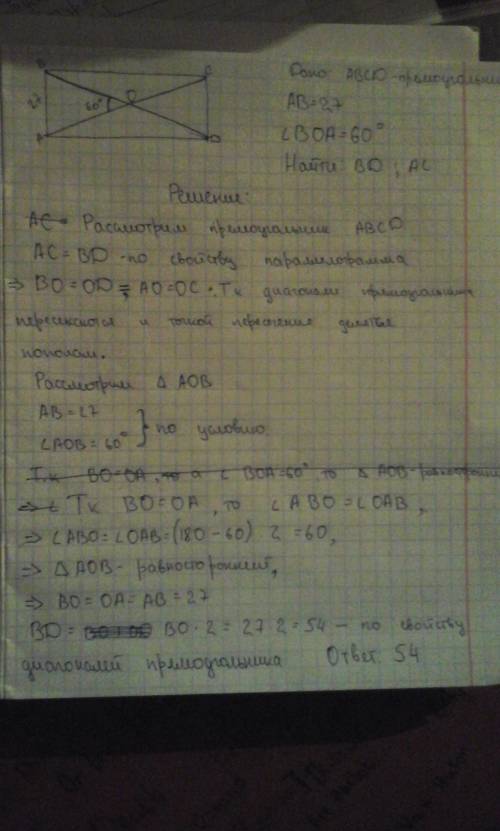 B
C
27
60°
O
A
D
Дано ABCD-прямоугольни
AB=27
∠BOA=60°
Найти: BD ; AC
Решение:
AC= Рассмотрим прямоугольник ABCD
AC=BD - по свойству
⇒ BO=OD = AO=OC. Тк диагонали
и точкой пересечения
пополам.
Рассмотрим △ AOB
AB=27
∠AOB=60° } по условию
Т.к BO=OA, то а ∠ BOA=60° то △ AOB-
Тк BO=OA, то ∠ABO=∠OAB,
⇒ ∠ABO=∠OAB=(180-60) 2 =60,
⇒ △AOB- равносторонний,
⇒ BO=OA=AB=27
BD= BO·2=27 2=54 - по свойству
диагоналей прямоугльника Ответ 54